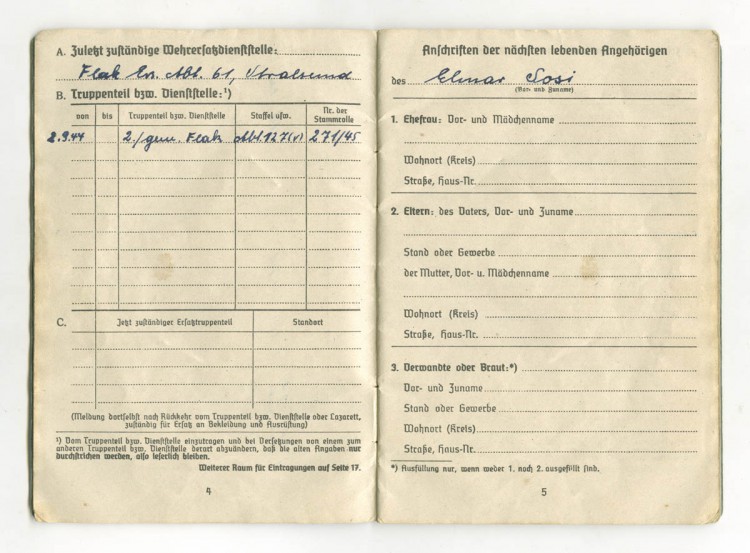 A. Zuletzt zuständige Wehrersatzdienststelle:
Flak Ers. Abt. 61, Stralsund
B. Truppenteil bzw. Dienststelle:¹)
von bis Truppenteil bzw. Dienststelle Staffel usw. Nr. der Stammrolle
2.9.44 2./gem. Flak Abt.127(v) 271/45
C. Jetzt zuständiger Ersatztruppenteil Standort
(Meldung dortselbst nach Rückkehr vom Truppenteil bzw. Dienststelle oder Lazarett,
zuständig für Ersatz an Bekleidung und Ausrüstung)
¹) Vom Truppenteil bzw. Dienststelle einzutragen und bei Versetzungen von einem zum
anderen Truppenteil bzw. Dienststelle derart abzuändern, daß die alten Angaben nur
durchstrichen werden, also leserlich bleiben.
Weiterer Raum für Eintragungen auf Seite 17.
4
Anschriften der nächsten lebenden Angehörigen
des Elmar Sosi
(Vor- und Zuname)
1. Ehefrau: Vor- und Mädchenname
Wohnort (Kreis)
Straße, Haus-Nr.
2. Eltern: des Vaters, Vor- und Zuname
Stand oder Gewerbe
der Mutter, Vor- u. Mädchenname
Wohnort (Kreis)
Straße, Haus-Nr.
3. Verwandte oder Braut:*)
Vor- und Zuname
Stand oder Gewerbe
Wohnort (Kreis)
Straße, Haus-Nr.
*) Ausfüllung nur, wenn weder 1. noch 2. ausgefüllt sind.
5